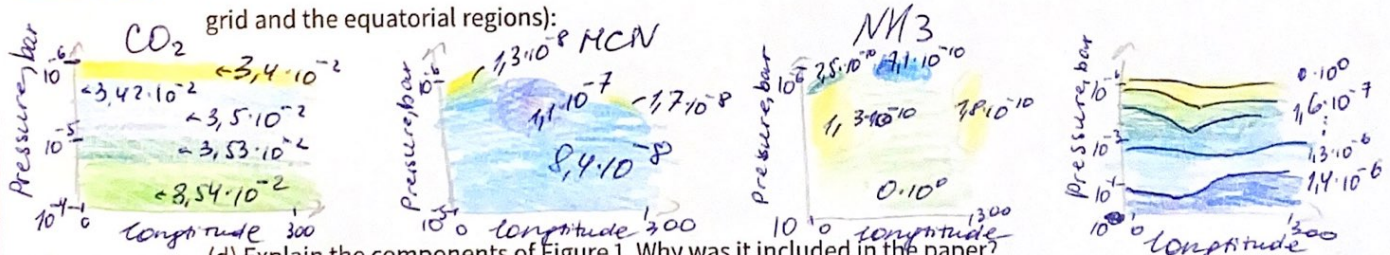 grid and the equatorial regions):
CO₂
Pressure, bar
10⁻⁶
10⁻⁵
10⁻⁴
←3,4·10⁻²
←3,42·10⁻²
←3,5·10⁻²
←3,53·10⁻²
←3,54·10⁻²
0
300
longtitude
HCN
Pressure, bar
10⁻⁶
1,3·10⁻⁸
1,1·10⁻⁷
1,7·10⁻⁸
8,4·10⁻⁸
0
300
longtitude
NH3
Pressure, bar
10⁻⁶
10
7,1·10⁻¹⁰
1,8·10⁻¹⁰
0·10⁰
0
300
longtitude
Pressure, bar
10⁻¹
10⁻³
10⁻¹
0·10⁰
1,6·10⁻⁷
1,3·10⁻⁶
1,4·10⁻⁶
300
longtitude
(d) Explain the components of Figure 1. Why was it included in the paper?